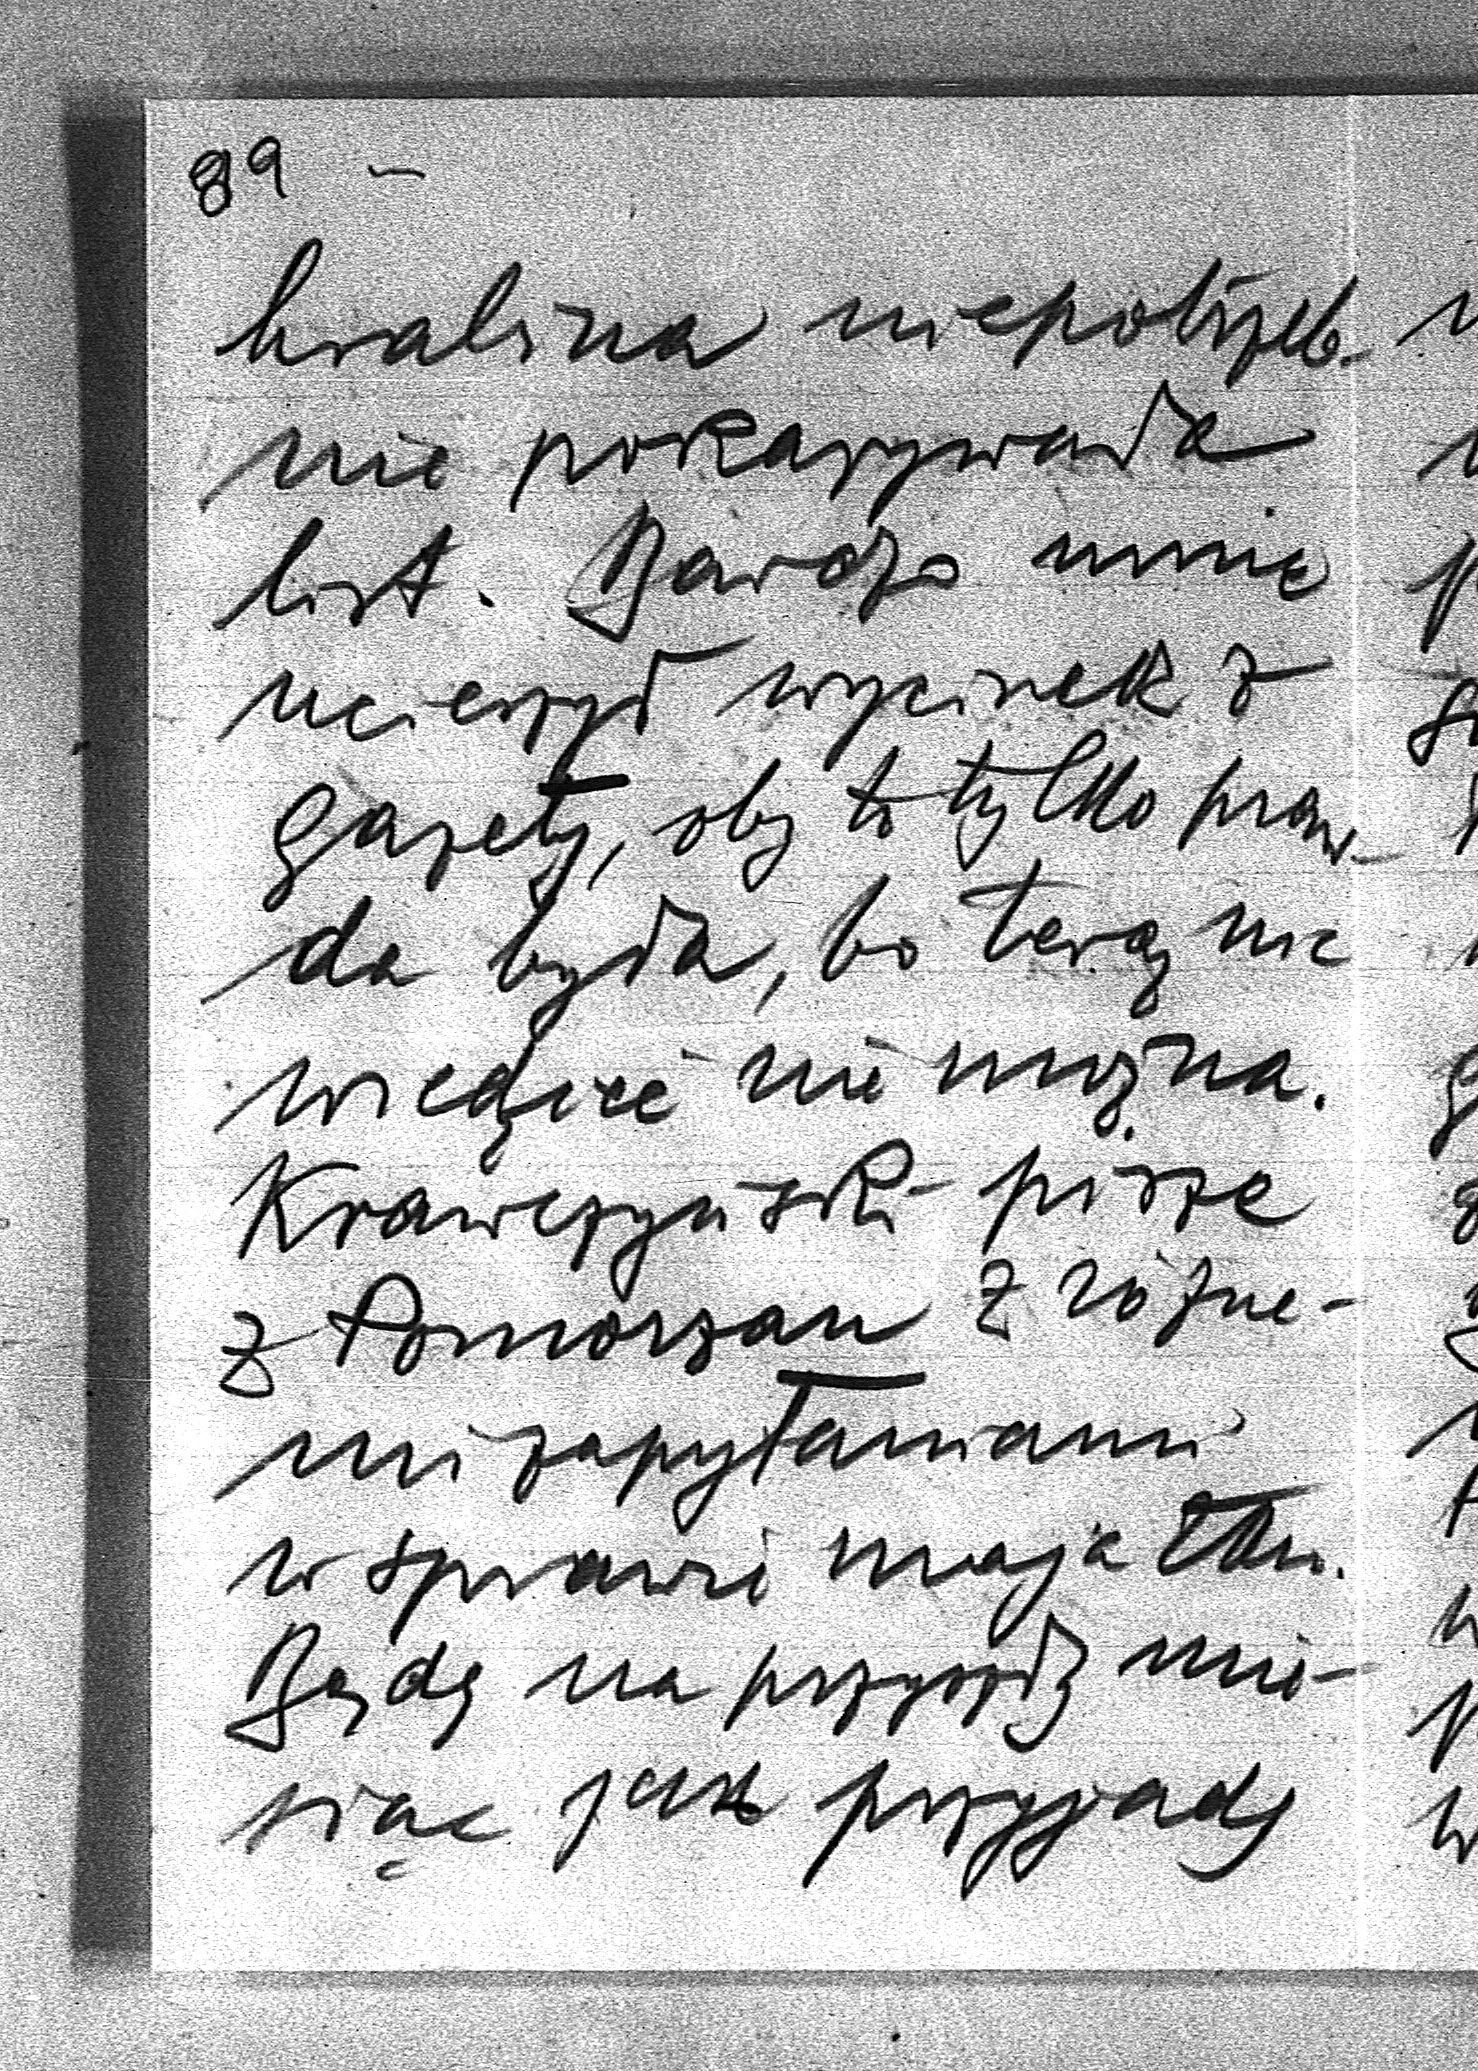 89 -
hrabina niepotrzeb-
nie pokazywała
list. Bardzo mnie
ucieszył wycinek z
gazety, oby to tylko praw-
da była, bo teraz nic
wiedzieć nie można.
Krawczyński pisze
z Pomorzan z różne-
mi zapytaniami
w sprawie majątku.
Będę na przyszły mie-
siąc jak przyjadę